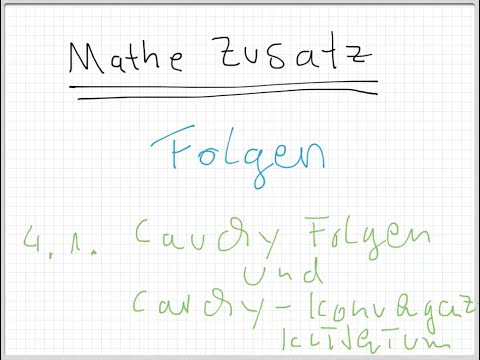 Mathe Zusatz
Folgen
4.1. Cauchy Folgen
und
Cauchy-Konvergenz
kriterium